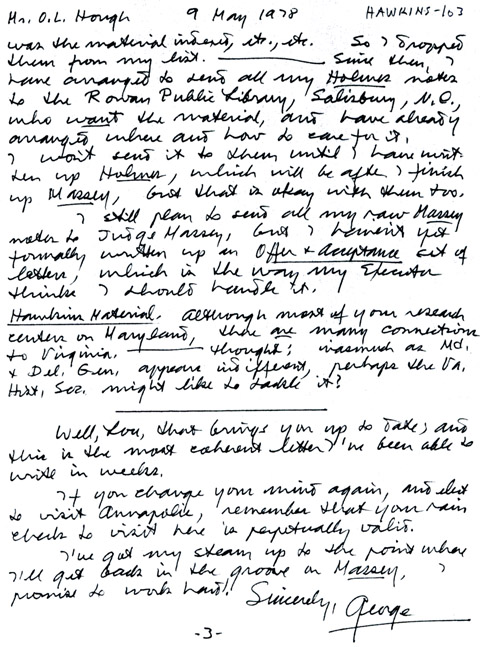 Mr. O.L. Hough 9 May 1978 HAWKINS-103
was the material indexed, etc., etc. So I dropped
them from my list. Since then, I
have arranged to send all my Holmes notes
to the Rowan Public Library, Salisbury, N.C.,
who want the material, and have already
arranged where and how to care for it.
I won't send it to them until I have writ-
ten up Holmes, which will be after I finish
up Massey, but that is okay with them too.
I still plan to send all my raw Massey
notes to Judge Massey, but I haven't yet
formally written up an Offer & Acceptance set of
letters, which is the way my Executor
thinks I should handle it.
Hawkins Material. Although most of your research
centers on Maryland, there are many connections
to Virginia. thought; inasmuch as Md.
& Del. Gen. appears indifferent, perhaps the Va.
Hist. Soc. might like to tackle it?
Well, Lou, that brings you up to date; and
this is the most coherent letter I've been able to
write in weeks.
If you change your mind again, and elect
to visit Annapolis, remember that your rain
check to visit here is perpetually valid.
I've got my steam up to the point where
I'll get back in the groove on Massey, I
promise to work hard!
Sincerely, George
-3-